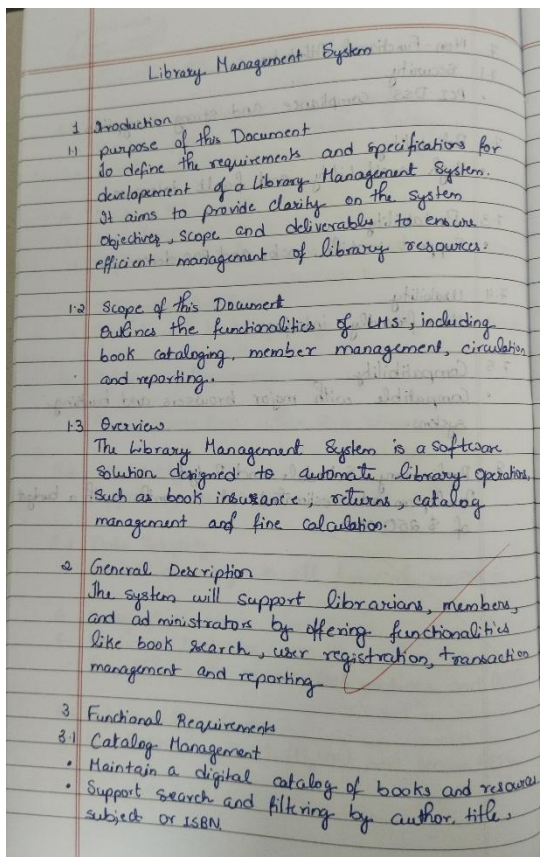 Library Management System
1 Iroduction
1.1 purpose of this Document
To define the requirements and specifications for
developement of a Library Management System.
It aims to provide clarity on the system
objectives, scope and deliverables to ensure
efficient management of library resources.
1.2 Scope of this Document
Outlines the functionalities of LMS, including
book cataloging, member management, circulation
and reporting.
1.3 Overview
The Library Management System is a software
solution designed to automate library operations,
such as book insurance, returns, catalog
management and fine calculation.
2 General Description
The system will support librarians, members,
and administrators by offering functionalities
like book search, user registration, transaction
management and reporting
3 Functional Requirements
3.1 Catalog Management
• Maintain a digital catalog of books and resources
• Support search and filtering by author, title,
subject or ISBN.